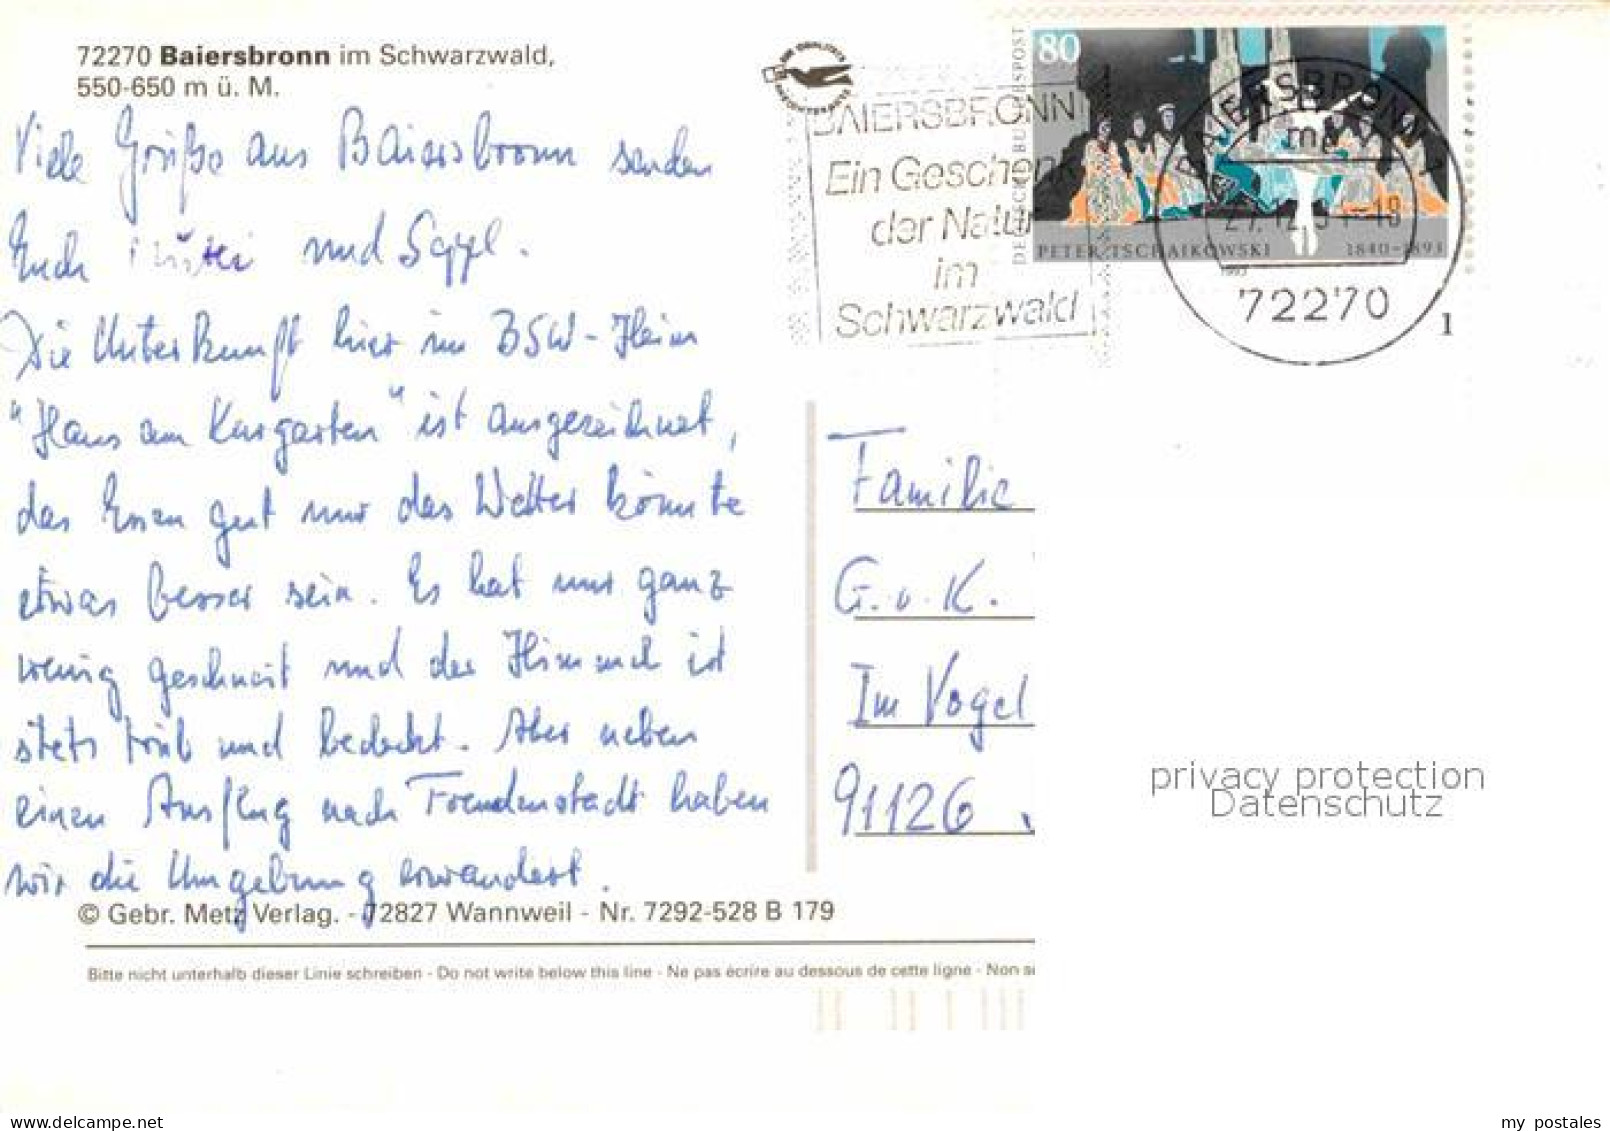 72270 Baiersbronn im Schwarzwald,
550-650 m ü. M.
Viele Grüße aus Baiersbronn senden
Euch und Seppl.
Die Unterkunft hier im BSW-Heim
"Haus am Kurgarten" ist ausgezeichnet,
das Essen gut nur das Wetter könnte
etwas besser sein. Es hat nur ganz
wenig geschneit und der Himmel ist
stets trüb und bedeckt. Aber neben
einen Ausflug nach Freudenstadt haben
wir die Umgebung erwandert.
© Gebr. Metz Verlag. - 72827 Wannweil - Nr. 7292-528 B 179
Bitte nicht unterhalb dieser Linie schreiben - Do not write below this line - Ne pas écrire au dessous de cette ligne - Non s
BAIERSBRONN
Ein Geschenk
der Natur
im
Schwarzwald
80
DEUTSCHE BUNDESPOST
PETER TSCHAIKOWSKI 1840-1893
1993
BAIERSBRONN 1
mk
27.12.9 -18
72270
1
Familie
G. u. K.
Im Vogel
91126
privacy protection
Datenschutz
my postales